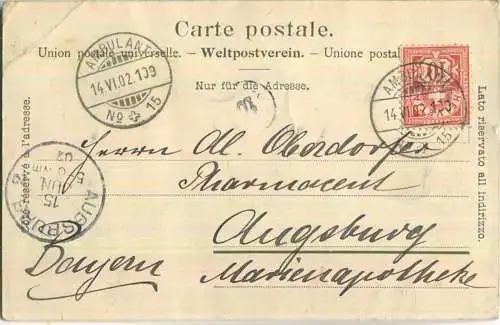 Carte postale.
Union postale universelle. - Weltpostverein. - Unione postale
Nur für die Adresse.
AMBULANT
14.VI.02.109
No 15
AMBULANT
14.VI.02.109
15
10
Côté réservé à l'adresse.
Lato riservato all indirizzo.
AUGSBURG
15
JUN.
02
Herrn Al. Oberdorfer
Pharmaceut
Augsburg
Bayern Marienapotheke